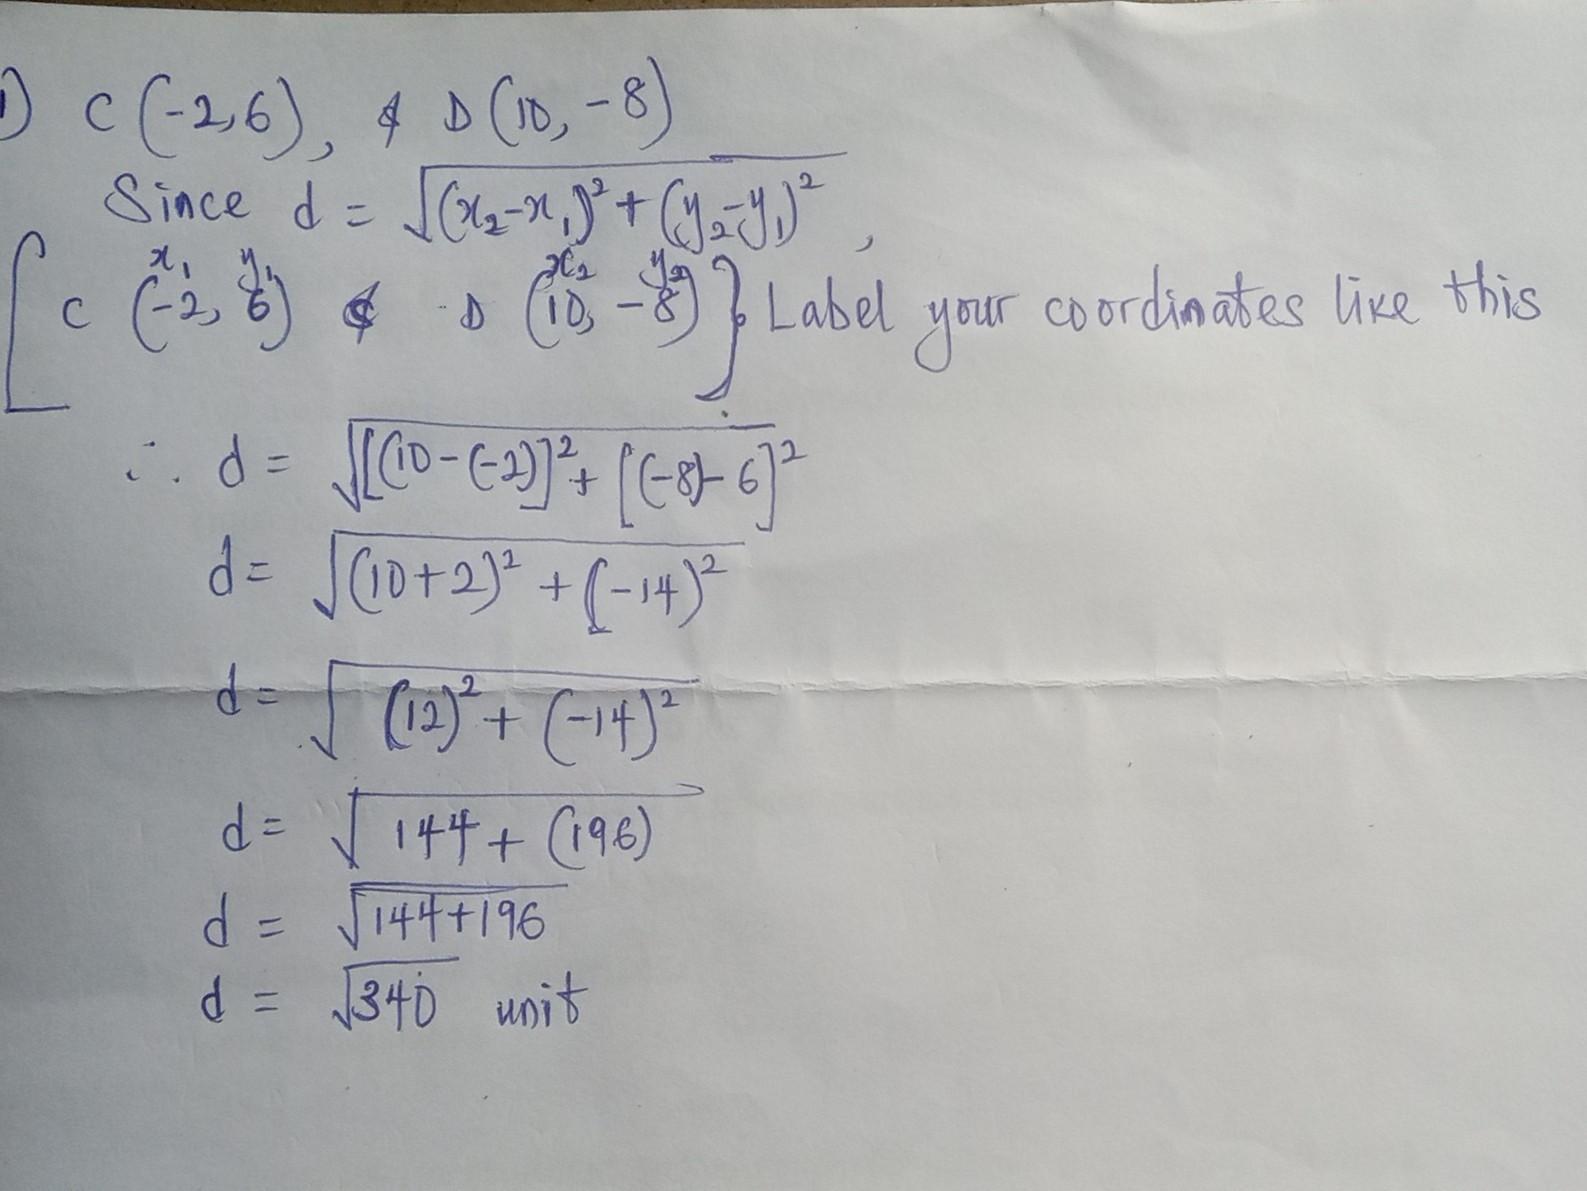 1) C (-2,6), & D (10, -8)
Since d = √(x₂-x₁)²+(y₂-y₁)²,
x₁ y₁ x₂ y₂
[C (-2, 6) & D (10, -8)} Label your coordinates like this
∴ d = √[(10-(-2)]²+[(-8)-6]²
d= √(10+2)² + (-14)²
d= √(12)²+(-14)²
d= √144+(196)
d = √144+196
d = √340 unit